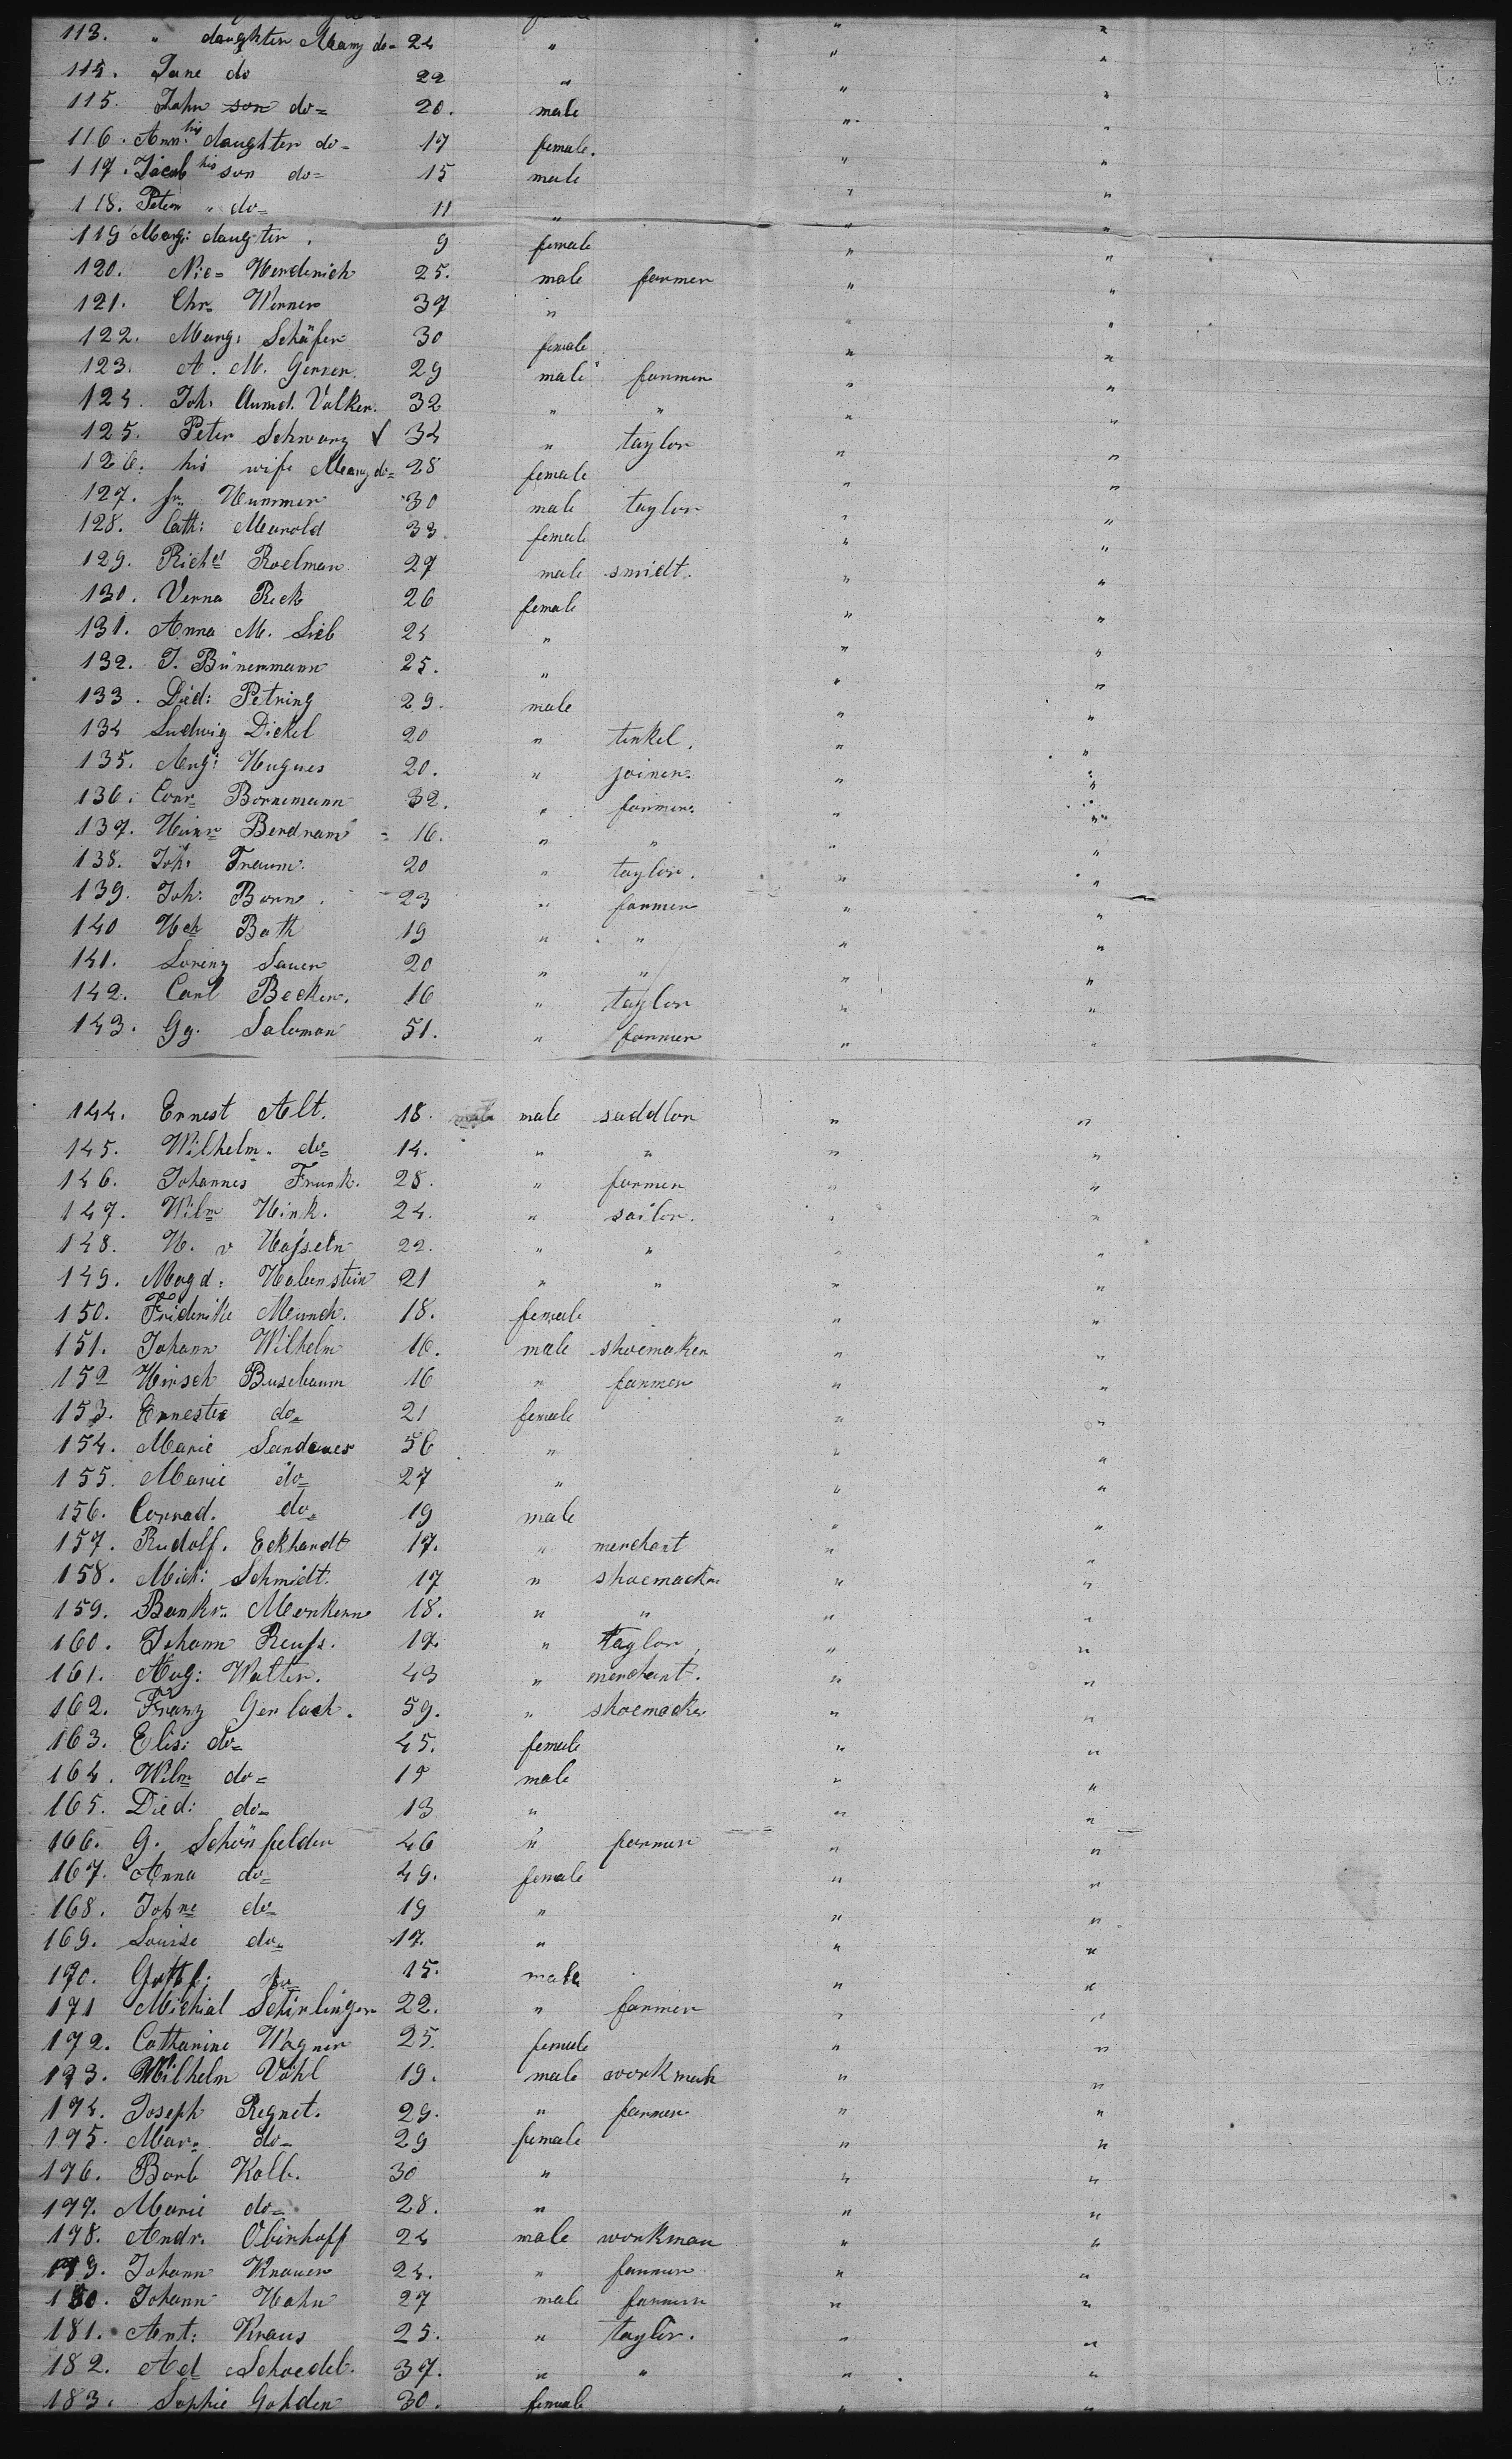 113. " daughter Mary do= 24 " " "
114. Jane do 22 " " "
115. John son do= 20. male " "
116. Ann: his daughter do= 17 female. " "
117. Jacob his son do= 15 male " "
118. Peter " do= 11 " " "
119 Marg: daugter . 9 female " "
120. Nic= Herderich 25. male farmer " "
121. Chr= Werner 37 " " "
122. Marg: Schäfer 30 female " "
123. A. M. Gerner. 29 male farmer " "
124. Joh: Aumdt. Volker. 32 " " " "
125. Peter Schwarz √ 34 " taylor " "
126. his wife Mary do= 28 female " "
127. fr. Hummer 30 male taylor " "
128. Cath: Marold 33 female " "
129. Richd Roelman 27 male smidt. " "
130. Verna Reck 26 female " "
131. Anna M. Lieb 24 " " "
132. J. Bünermann 25. " " "
133. Died: Petring 29. male " "
134 Ludwig Dickel 20 " tinkel. " "
135. Aug: Hugues 20. " joiner. " "
136. Conr= Bornemann 32. " farmer. " "
137. Heinr= Berdram = 16. " " " "
138. Joh: Traum. 20 " taylor. " "
139. Joh: Born. 23 " farmer " "
140 Hch Bath 19 " " " "
141. Lorenz Sauer 20 " " " "
142. Carl Becker. 16 " taylor " "
143. Gg. Saloman 51. " farmer " "
144. Ernest Alt. 18. male saddlor " "
145. Wilhelm. do= 14. " " " "
146. Johannes Frank. 28. " farmer " "
147. Wilm Hink. 24. " sailor. " "
148. H. v Hasseln 22. " " " "
149. Magd: Halenstein 21 " " " "
150. Friderike Meunch. 18. female " "
151. Johann Wilhelm 16. male shoemaker " "
152 Hirsch Busebaum 16 " farmer " "
153. Ernestie do= 21 female " "
154. Marie Sandaues 56 " " "
155. Marie do= 27 " " "
156. Conrad. do= 19 male " "
157. Rudolf. Eckhardt 17. " merchant " "
158. Mich: Schmidt. 17 " shoemacker " "
159. Bankr= Merkenn 18. " " " "
160. Johann Reuss. 17. " Taylor, " "
161. Aug: Walter. 43 " merchant. " "
162. Franz Gerlach. 59. " shoemacker " "
163. Elis: do= 45. female " "
164. Wilm do= 19 male " "
165. Died: do= 13 " " "
166. G. Schönfelder 46 " farmer " "
167. Anna do= 49. female " "
168. Johne do= 19 " " "
169. Louise do= 17. " " "
170. Gottf: do= 15. male " "
171 Michial Schirlinger 22. " farmer " "
172. Catharine Wagner 25. female " "
173. Wilhelm Vöhl 19. male workman " "
174. Joseph Regnet. 29. " farmer " "
175. Mar= do= 29 female " "
176. Barb Kolb. 30 " " "
177. Marie do= 28. " " "
178. Andr. Obirhoff 24 male workman " "
179. Johann Knauer 24. " farmer " "
180. Johann Hahn 27 male farmer " "
181. Ant: Kraus 25. " taylor. " "
182. Ad Schoedel. 37. " " " "
183. Sophie Gohden 30. female " "